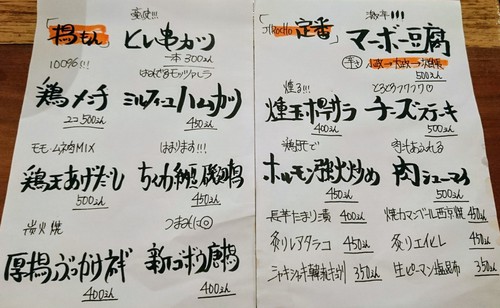 「揚もん」
豪快!!!
ヒレ串カツ
一本 300えん
100%!!!
鶏メンチ
2コ 500えん
はみでるモッツァレラ
ミルフィーユハムカツ
450えん
モモ・ムネMIX
鶏天あげだし
500えん
はまります!!!
ちくわ納豆磯辺揚
450えん
炭火焼
厚揚ぶっかけネギ
400えん
つまみに◎
新ゴボウ唐揚
400えん
「定番」
激辛!!!
マーボー豆腐
500えん
燻る!!!
燻玉ポテサラ
400えん
とろとろフワフワ♡
チーズステーキ
500えん
ホルモン強火炒め
450えん
肉シューマイ
500えん
長芋たまり漬 400えん
焼カマンベール西京焼 450えん
炙りレアタラコ 450えん
炙りエイヒレ 450えん
シャキシャキ韓乱キュウリ 350えん
生ピーマン塩昆布 350えん